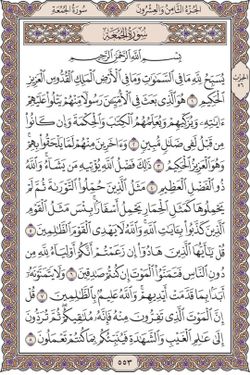 سُورَةُ الجُمُعَة
الجُزْءُ الثَّامِنُ وَالعِشْرُونَ
سُورَةُ الجُمُعَةِ
بِسْمِ اللَّهِ الرَّحْمَٰنِ الرَّحِيمِ
يُسَبِّحُ لِلَّهِ مَا فِي السَّمَٰوَٰتِ وَمَا فِي الْأَرْضِ الْمَلِكِ الْقُدُّوسِ الْعَزِيزِ
الْحَكِيمِ ١ هُوَ الَّذِي بَعَثَ فِي الْأُمِّيِّـۧنَ رَسُولًا مِّنْهُمْ يَتْلُوا عَلَيْهِمْ
ءَايَٰتِهِ وَيُزَكِّيهِمْ وَيُعَلِّمُهُمُ الْكِتَٰبَ وَالْحِكْمَةَ وَإِن كَانُوا
مِن قَبْلُ لَفِي ضَلَٰلٍ مُّبِينٍ ٢ وَءَاخَرِينَ مِنْهُمْ لَمَّا يَلْحَقُوا بِهِمْ
وَهُوَ الْعَزِيزُ الْحَكِيمُ ٣ ذَٰلِكَ فَضْلُ اللَّهِ يُؤْتِيهِ مَن يَشَاءُ وَاللَّهُ
ذُو الْفَضْلِ الْعَظِيمِ ٤ مَثَلُ الَّذِينَ حُمِّلُوا التَّوْرَىٰةَ ثُمَّ لَمْ
يَحْمِلُوهَا كَمَثَلِ الْحِمَارِ يَحْمِلُ أَسْفَارًا بِئْسَ مَثَلُ الْقَوْمِ
الَّذِينَ كَذَّبُوا بِـَٔايَٰتِ اللَّهِ وَاللَّهُ لَا يَهْدِي الْقَوْمَ الظَّٰلِمِينَ ٥
قُلْ يَٰٓأَيُّهَا الَّذِينَ هَادُوا إِن زَعَمْتُمْ أَنَّكُمْ أَوْلِيَاءُ لِلَّهِ مِن
دُونِ النَّاسِ فَتَمَنَّوُا الْمَوْتَ إِن كُنتُمْ صَٰدِقِينَ ٦ وَلَا يَتَمَنَّوْنَهُ
أَبَدًا بِمَا قَدَّمَتْ أَيْدِيهِمْ وَاللَّهُ عَلِيمٌ بِالظَّٰلِمِينَ ٧
قُلْ إِنَّ الْمَوْتَ الَّذِي تَفِرُّونَ مِنْهُ فَإِنَّهُ مُلَٰقِيكُمْ ثُمَّ تُرَدُّونَ
إِلَىٰ عَٰلِمِ الْغَيْبِ وَالشَّهَٰدَةِ فَيُنَبِّئُكُم بِمَا كُنتُمْ تَعْمَلُونَ ٨
٥٥٣